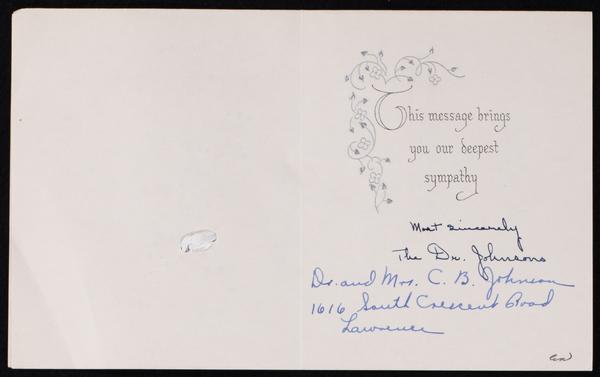 This message brings
you our deepest
sympathy
Most sincerely
The Dr. Johnsons
Dr. and Mrs. C. B. Johnson
1616 South Crescent Road
Lawrence